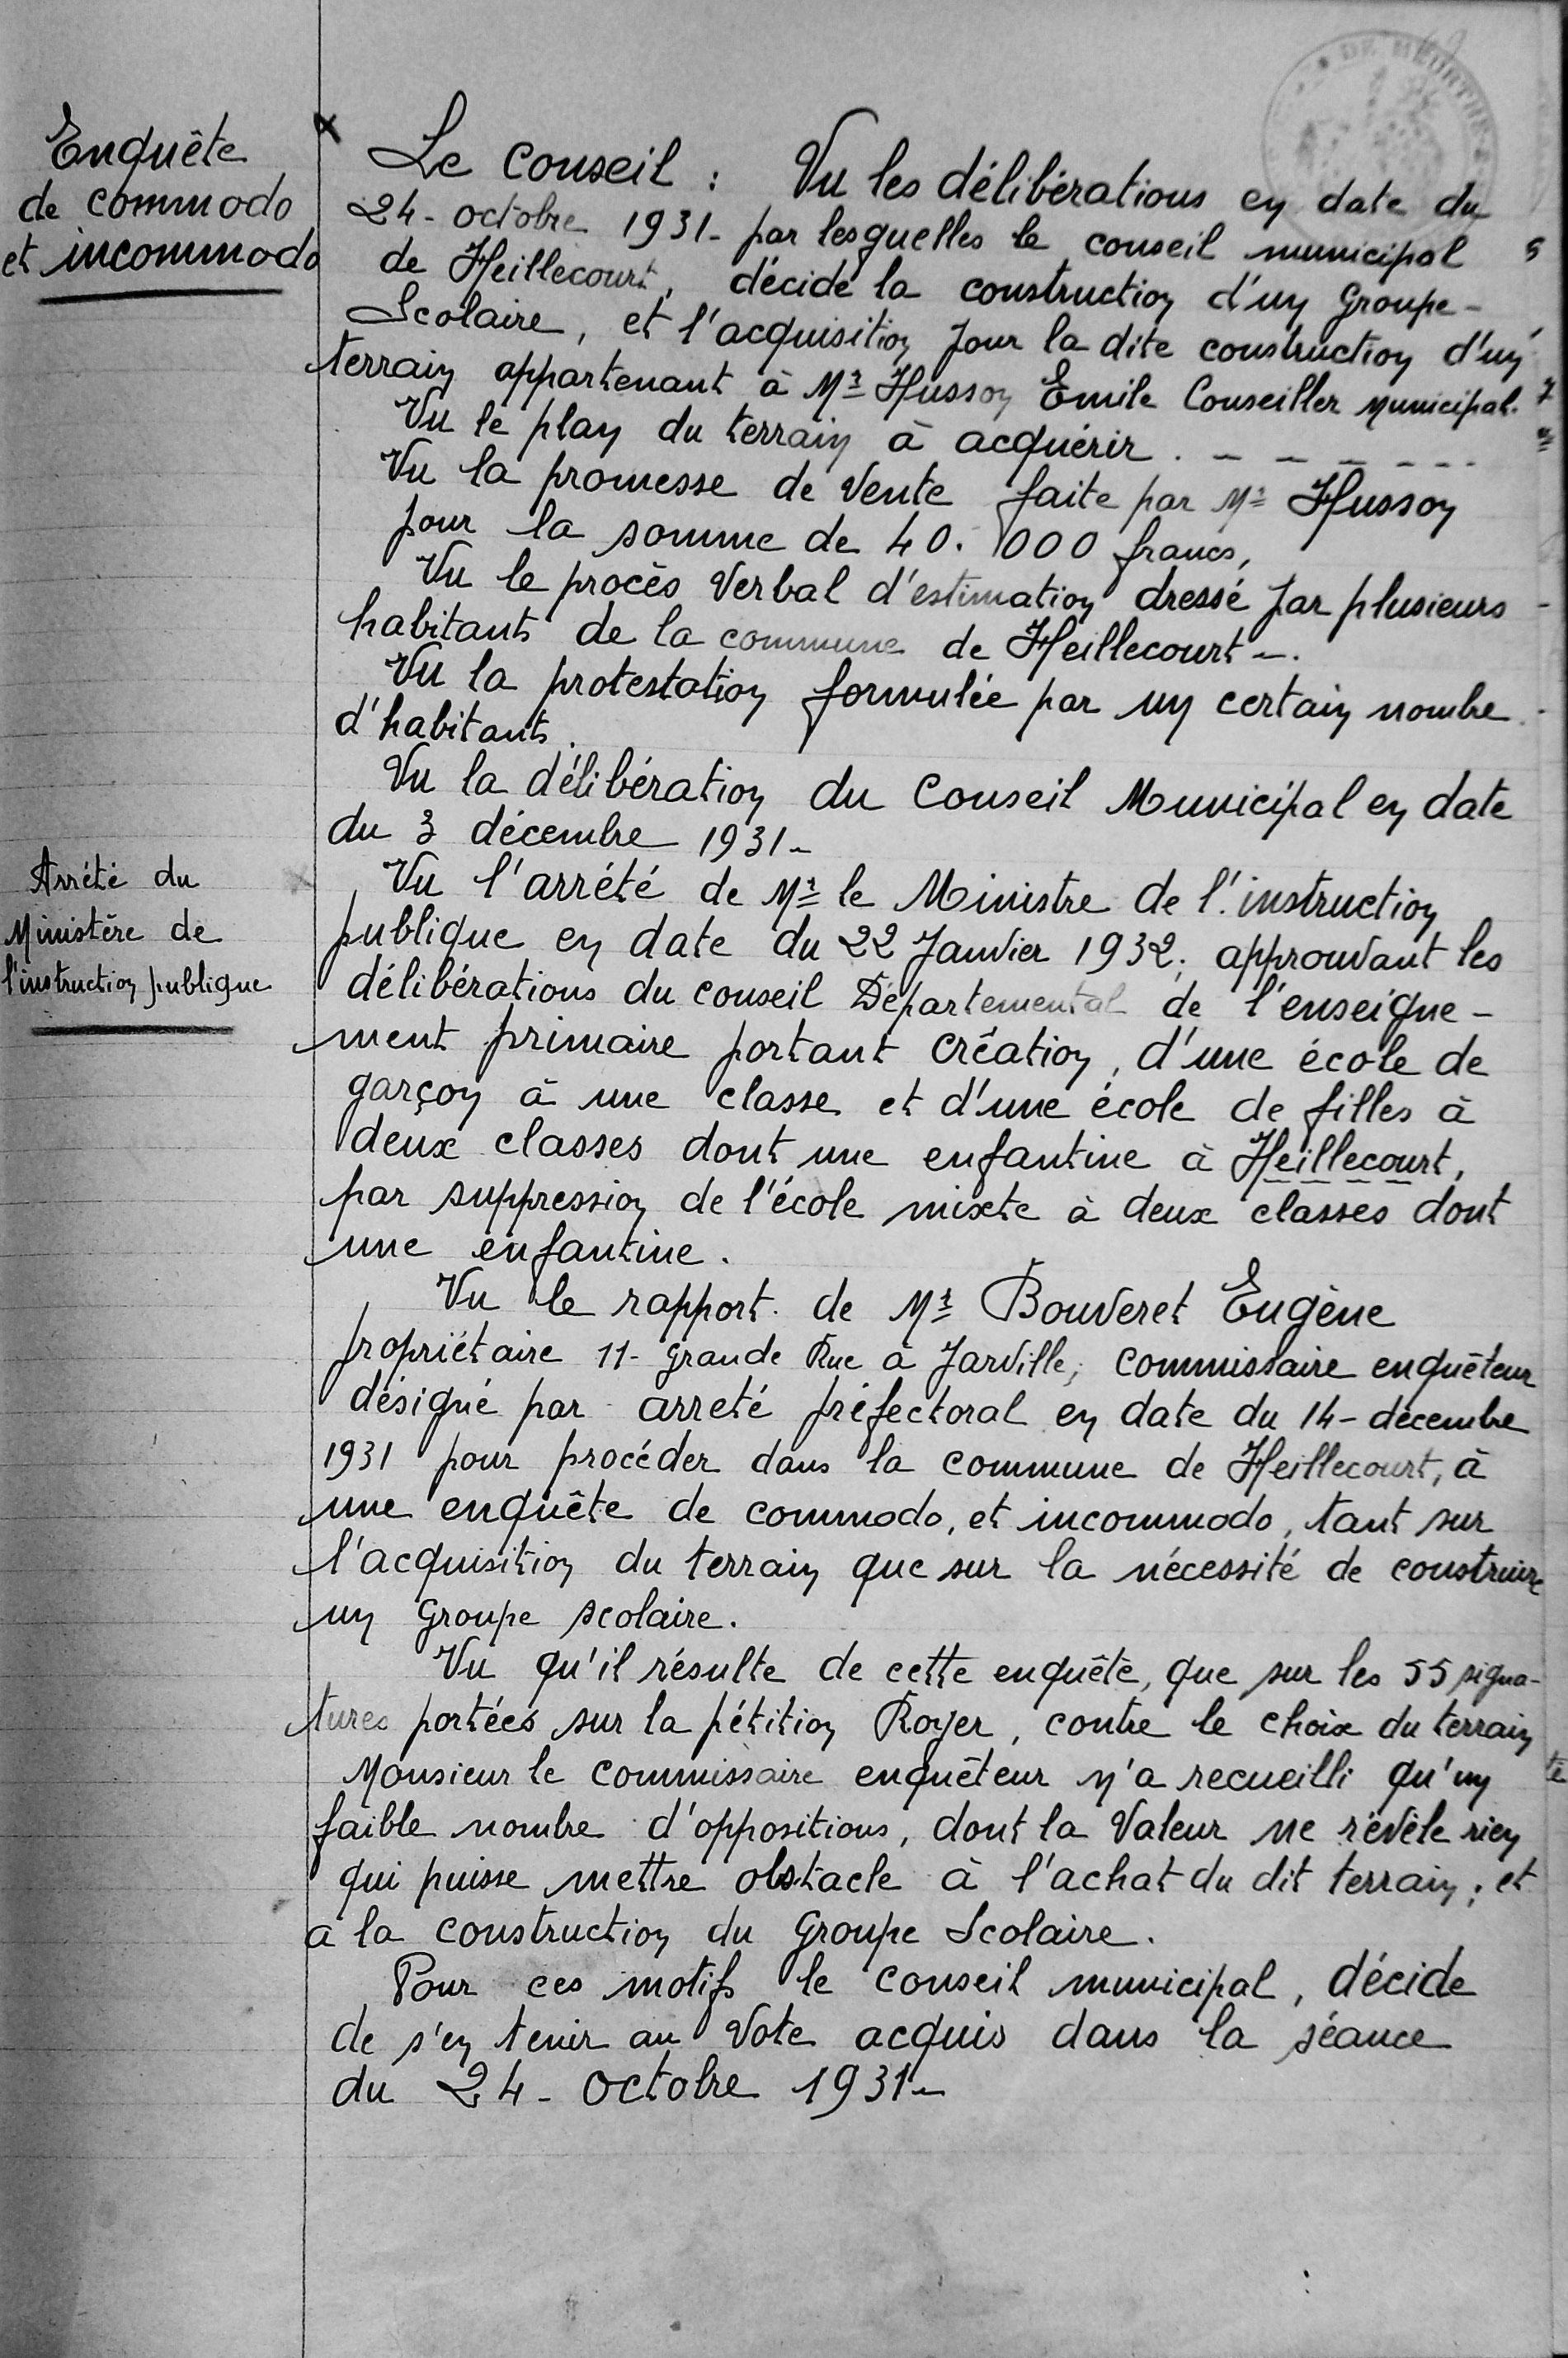 Enquête
de commodo
et incommodo
Le Conseil : Vu les délibérations en date du
24 - octobre 1931 - par lesquelles le conseil municipal
de Heillecourt, décide la construction d'un Groupe -
Scolaire, et l'acquisition pour la dite construction d'un
terrain appartenant à Mr Husson Emile Conseiller Municipal.
Vu le plan du terrain à acquérir. - - - - - - -
Vu la promesse de Vente faite par Mr Husson
pour la somme de 40.000 francs,
Vu le procès Verbal d'estimation dressé par plusieurs
habitants de la commune de Heillecourt -.
Vu la protestation formulée par un certain nombre
d'habitants.
Vu la délibération du Conseil Municipal en date
du 3 décembre 1931 -
Arrêté du
Ministère de
l'instruction publique
Vu l'arrété de Mr le Ministre de l'instruction
publique en date du 22 Janvier 1932; approuvant les
délibérations du conseil Départemental de l'enseigne -
ment primaire portant création, d'une école de
garçon à une classe et d'une école de filles à
deux classes dont une enfantine à Heillecourt,
par suppression de l'école mixte à deux classes dont
une enfantine.
Vu le rapport de Mr Bouveret Eugène
propriétaire 11 - Grande Rue à Jarville, commissaire enquêteur
désigné par arreté préfectoral en date du 14 - décembre
1931 pour procéder dans la commune de Heillecourt, à
une enquête de commodo, et incommodo, tant sur
l'acquisition du terrain que sur la nécessité de construire
un Groupe scolaire.
Vu qu'il résulte de cette enquête, que sur les 55 signa -
tures portées sur la pétition Royer, contre le choix du terrain
Monsieur le commissaire enquêteur n'a recueilli qu'un
faible nombre d'oppositions, dont la Valeur ne révèle rien
qui puisse mettre obstacle à l'achat du dit terrain; et
à la construction du Groupe Scolaire.
Pour ces motifs le Conseil municipal, décide
de s'en tenir au Vote acquis dans la séance
du 24 - octobre 1931 -